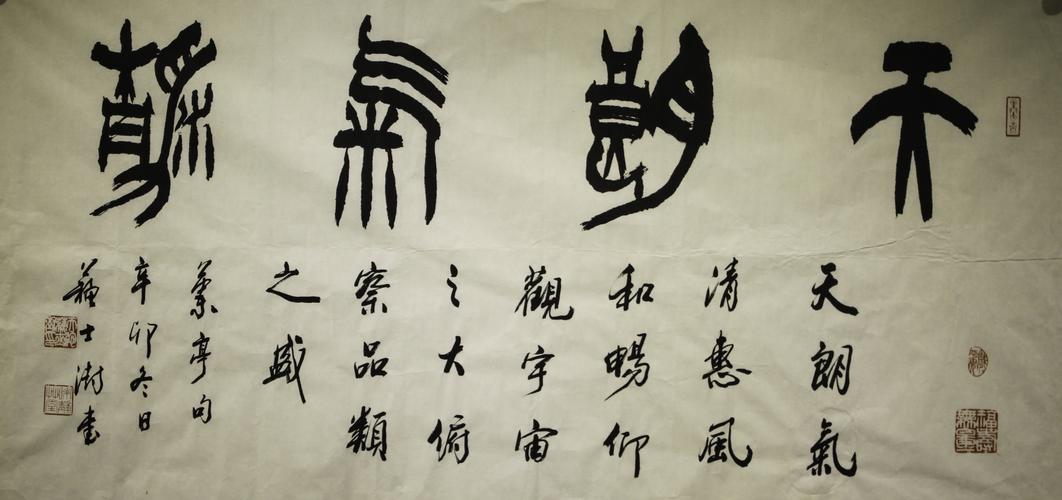 天朗氣清
天朗氣
清惠風
和暢仰
觀宇宙
之大俯
察品類
之盛
蘭亭句
辛卯冬日
蘇士澍書